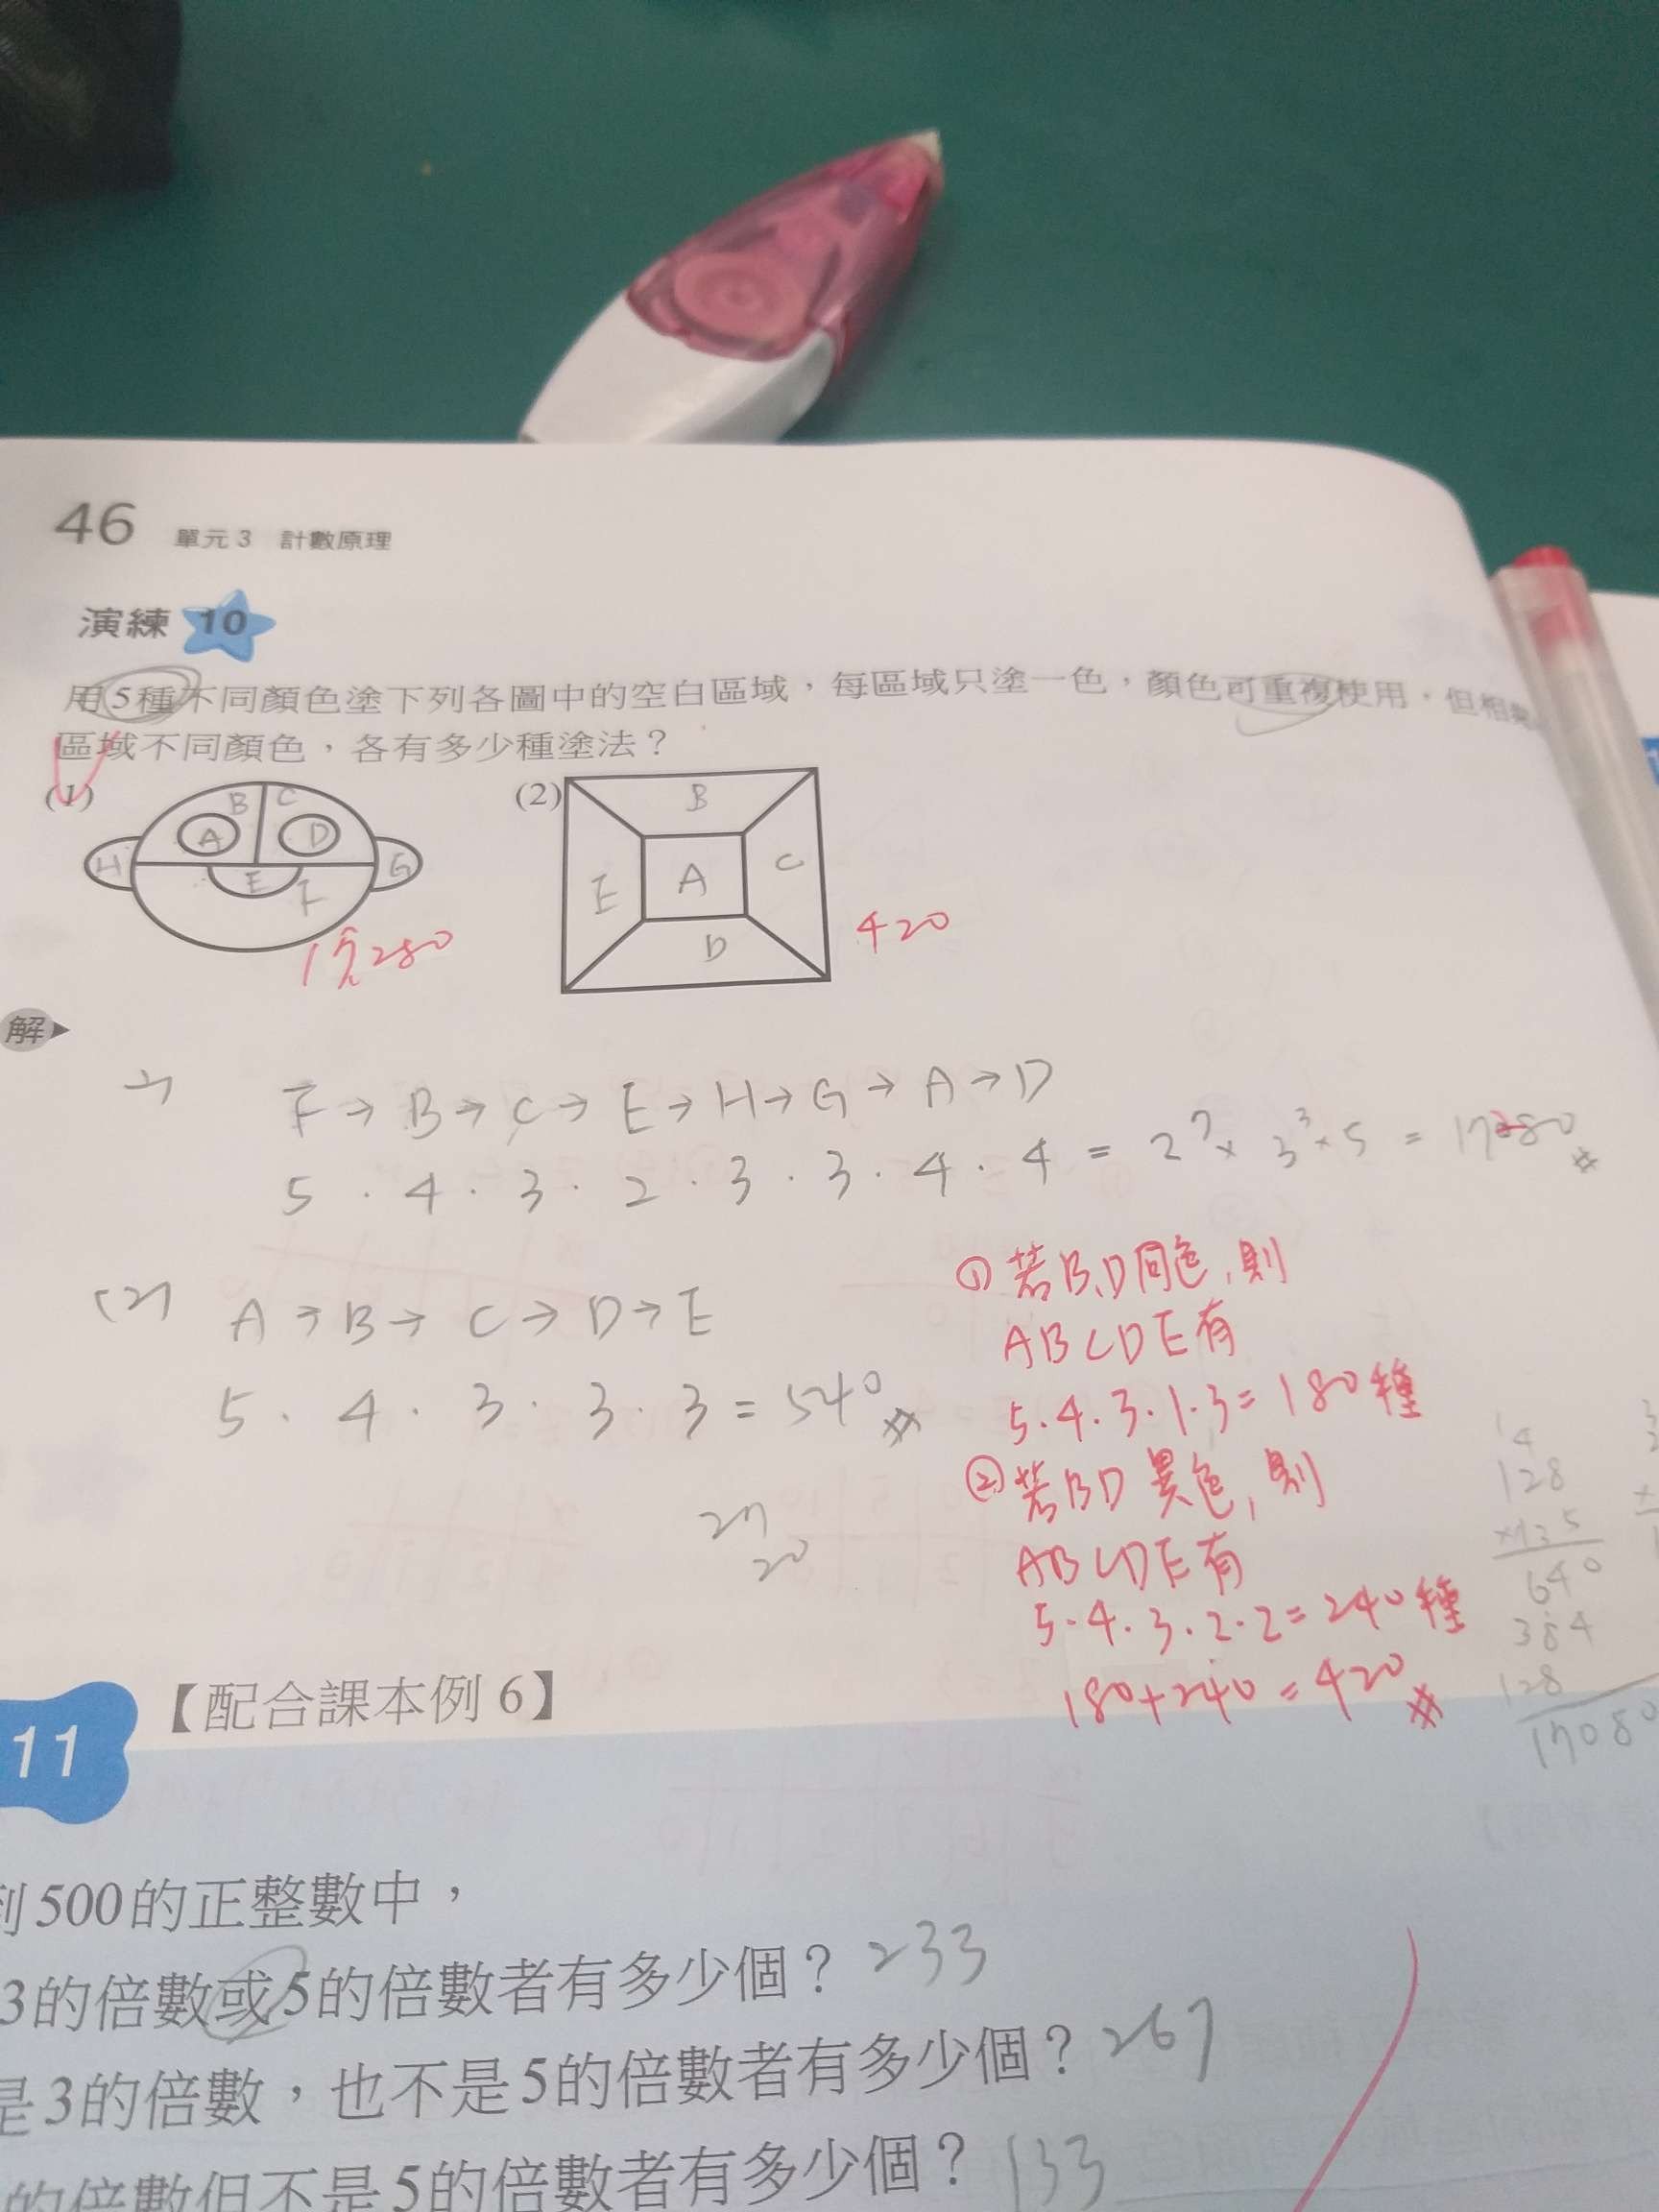 46 單元3 計數原理
演練 10
用5種不同顏色塗下列各圖中的空白區域，每區域只塗一色，顏色可重複使用，但相鄰
區域不同顏色，各有多少種塗法？
(1)
B C
A D
H E G
F
17280
(2)
B
E A C
D
420
解
F→B→C→E→H→G→A→D
5·4·3·2·3·3·4·4=2⁷×3³×5=17280
(2) A→B→C→D→E
5·4·3·3·3=540
27
20
①若B,D同色,則
ABCDE有
5·4·3·1·3=180種
②若BD異色,則
ABCDE有
5·4·3·2·2=240種
180+240=420
14
128
×135
640
384
128
17080
11 【配合課本例6】
到500的正整數中，
3的倍數或5的倍數者有多少個？ 233
是3的倍數，也不是5的倍數者有多少個？ 267
的倍數但不是5的倍數者有多少個？ 133